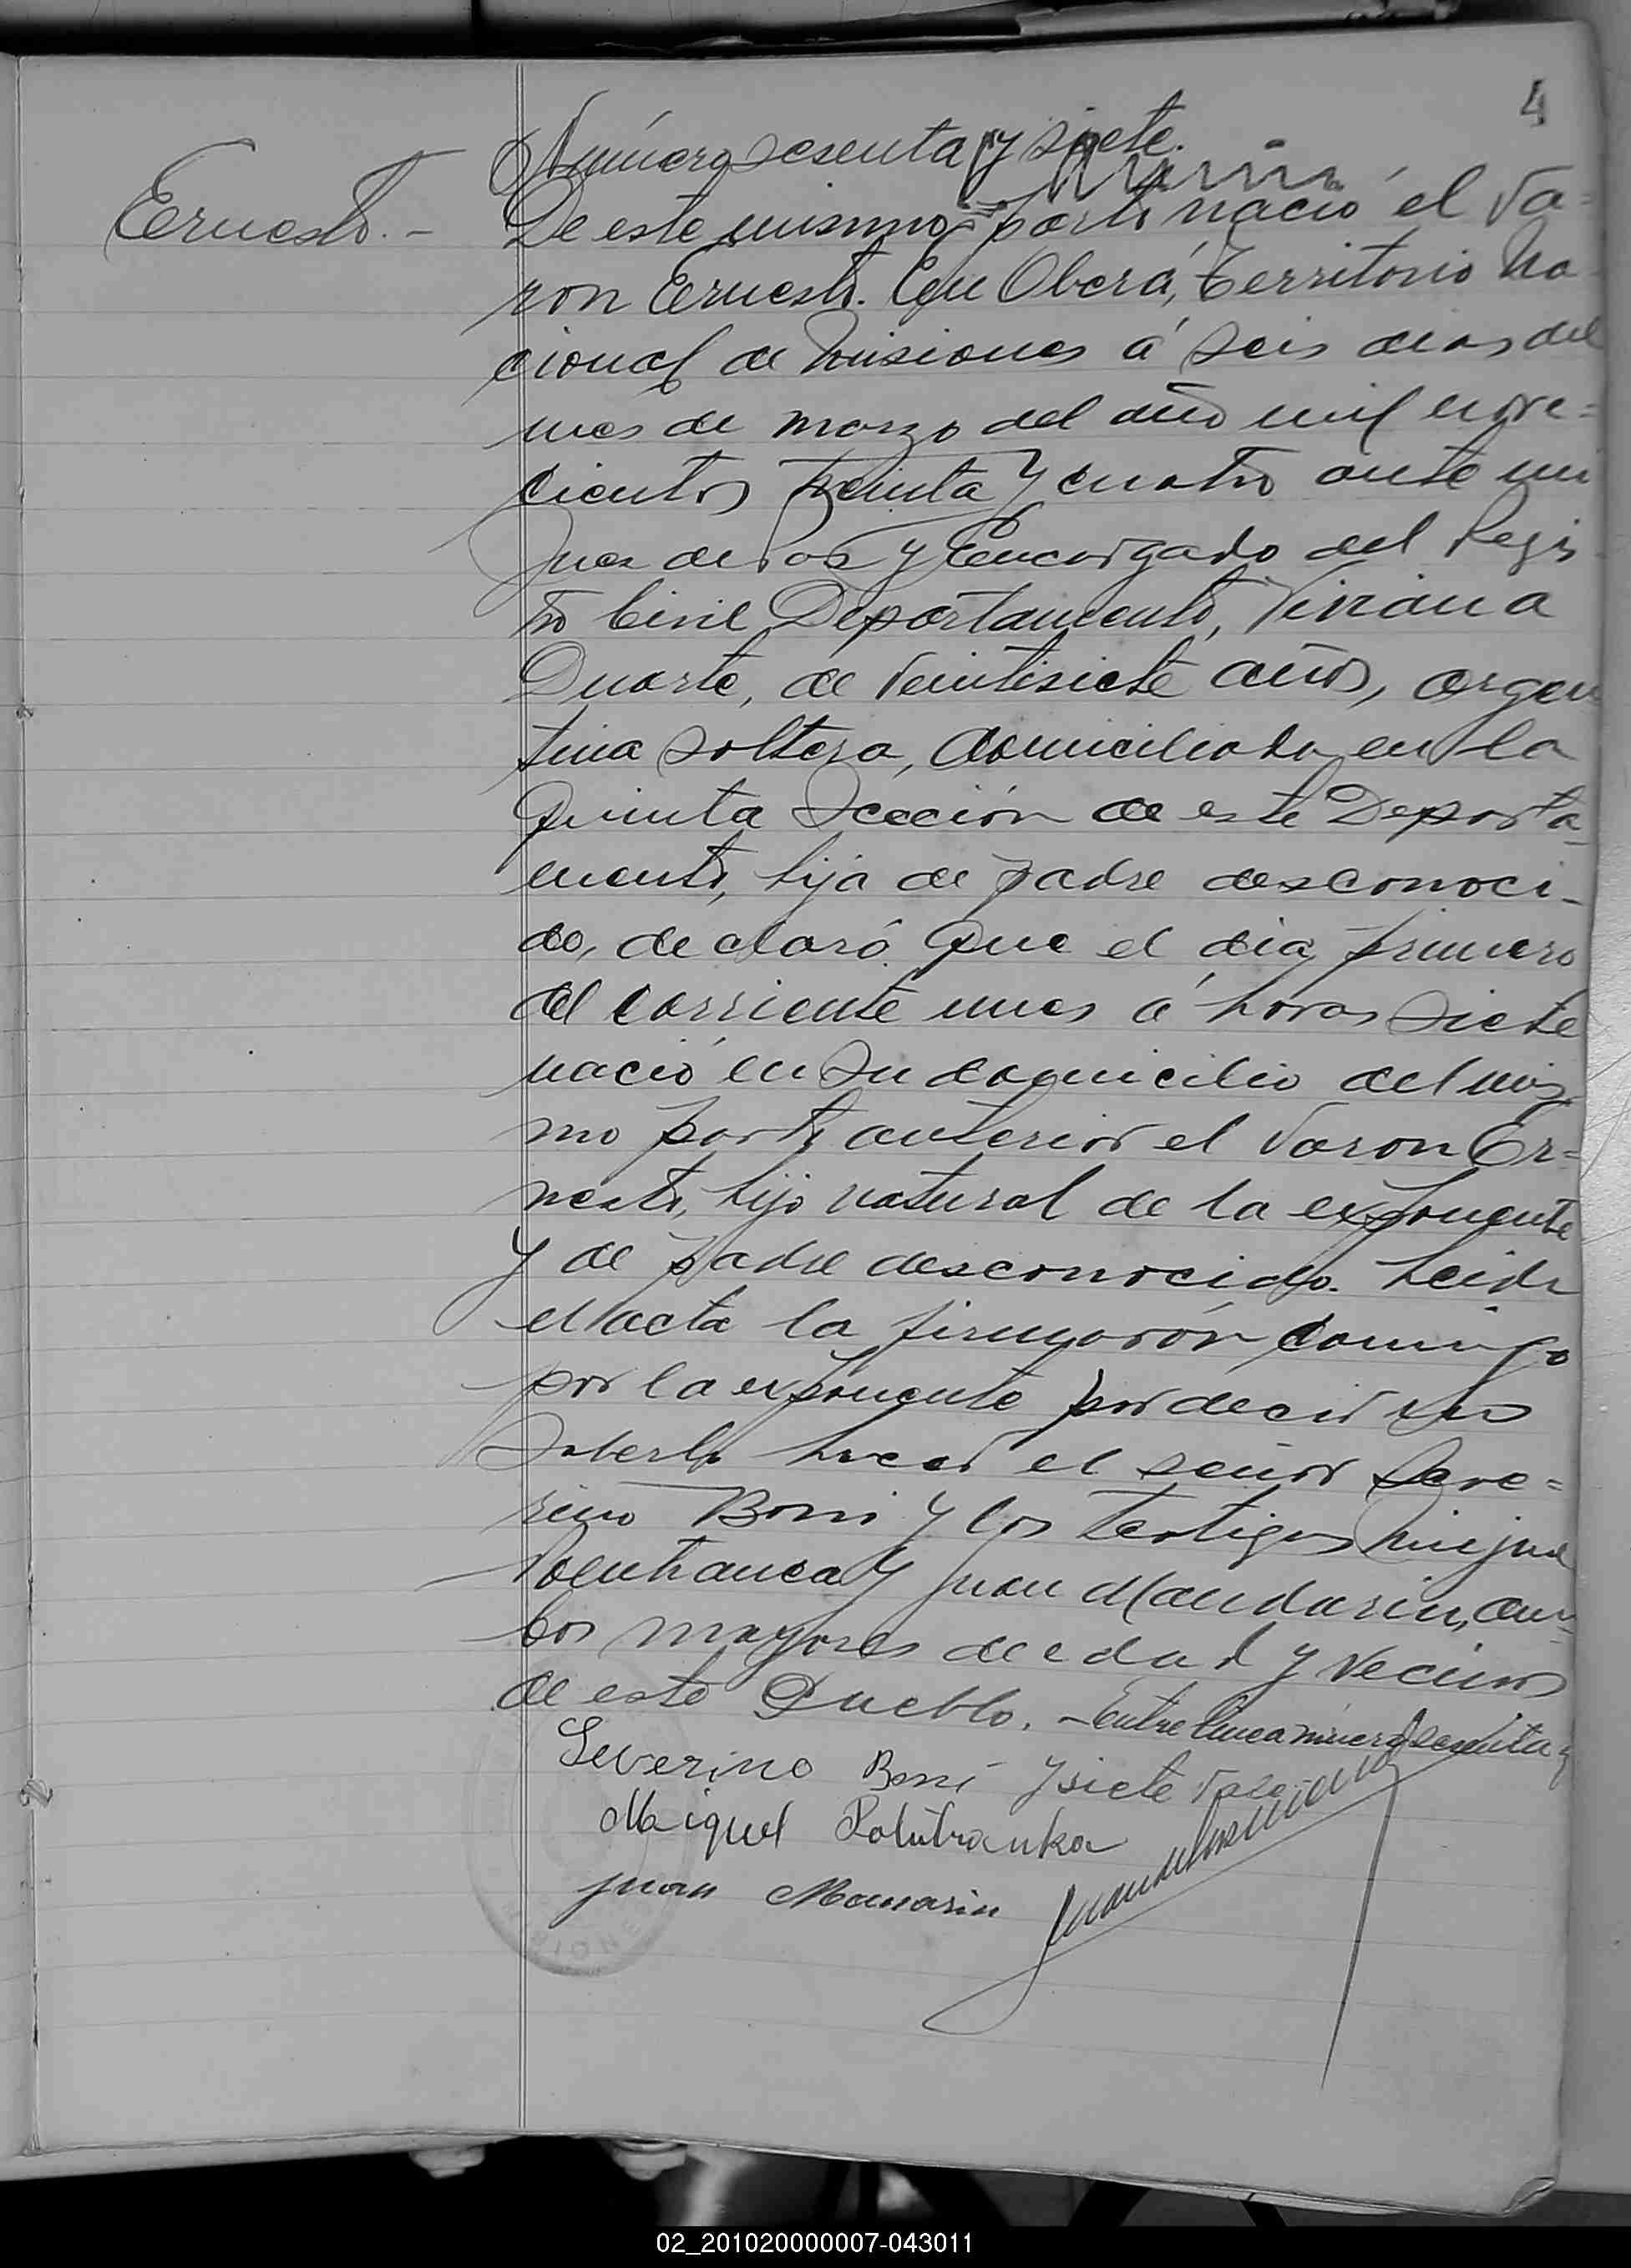 4
Número sesenta y siete.
Ernesto.-
De este mismo parto nació el va=
ron Ernesto. En Oberá, Territorio Na-
cional de Misiones á seis dias del
mes de marzo del año mil nove=
cientos treinta y cuatro ante mi
Juez de Paz y Encargado del Regis-
tro Civil Departamento, Viviana
Duarte, de veintisiete años, argen
tina soltera, domiciliada en la
quinta Sección de este Departa-
mento, hija de padre desconoci-
do, declaró: Que el dia primero
del corriente mes á horas siete
nació en su domicilio del mis
mo parto anterior el varon Er=
nesto, hijo natural de la exponente
y de padre desconocido. Leida
el acta la firmarón conmigo
por la exponente por decir no
saberlo hacer el señor Seve=
rino Boni y los testigos Miguel
Polutranca y Juan Mandarin, am-
bos mayores de edad y vecinos
de este Pueblo. - Entre linea número sesenta y
Severino Boni y siete vale
Miguel Polutranka
Juan Manarin
02_201020000007-043011